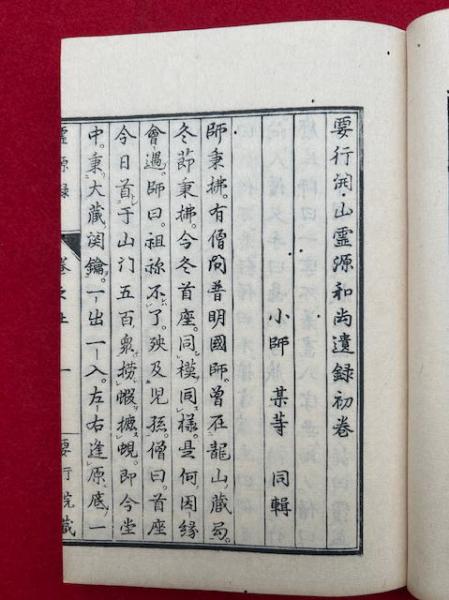 要行開山霊源和尚遺録初巻
小師 某等 同輯
師秉拂。有僧問普明國師曽在龍山蔵局。
冬節秉拂。今冬首座。同模同様。是何因縁
會遇。師曰。祖祢不了。殃及児孫。僧曰。首座
今日首于山门五百衆撈蝦摝蜆。即今堂
中。秉大蔵関鑰。一出一入。左右逢原底。一
霊源録 巻之上 一 要行院蔵